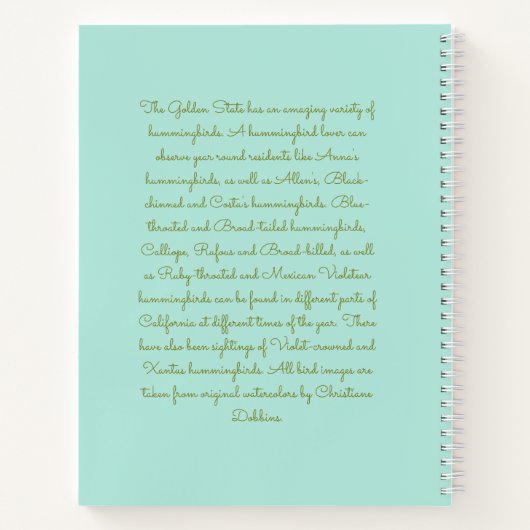 The Golden State has an amazing variety of
hummingbirds. A hummingbird lover can
observe year round residents like Anna's
hummingbirds, as well as Allen's, Black-
chinned and Costa's hummingbirds. Blue-
throated and Broad-tailed hummingbirds,
Calliope, Rufous and Broad-billed, as well
as Ruby-throated and Mexican Violetear
hummingbirds can be found in different parts of
California at different times of the year. There
have also been sightings of Violet-crowned and
Xantus hummingbirds. All bird images are
taken from original watercolors by Christiane
Dobbins.